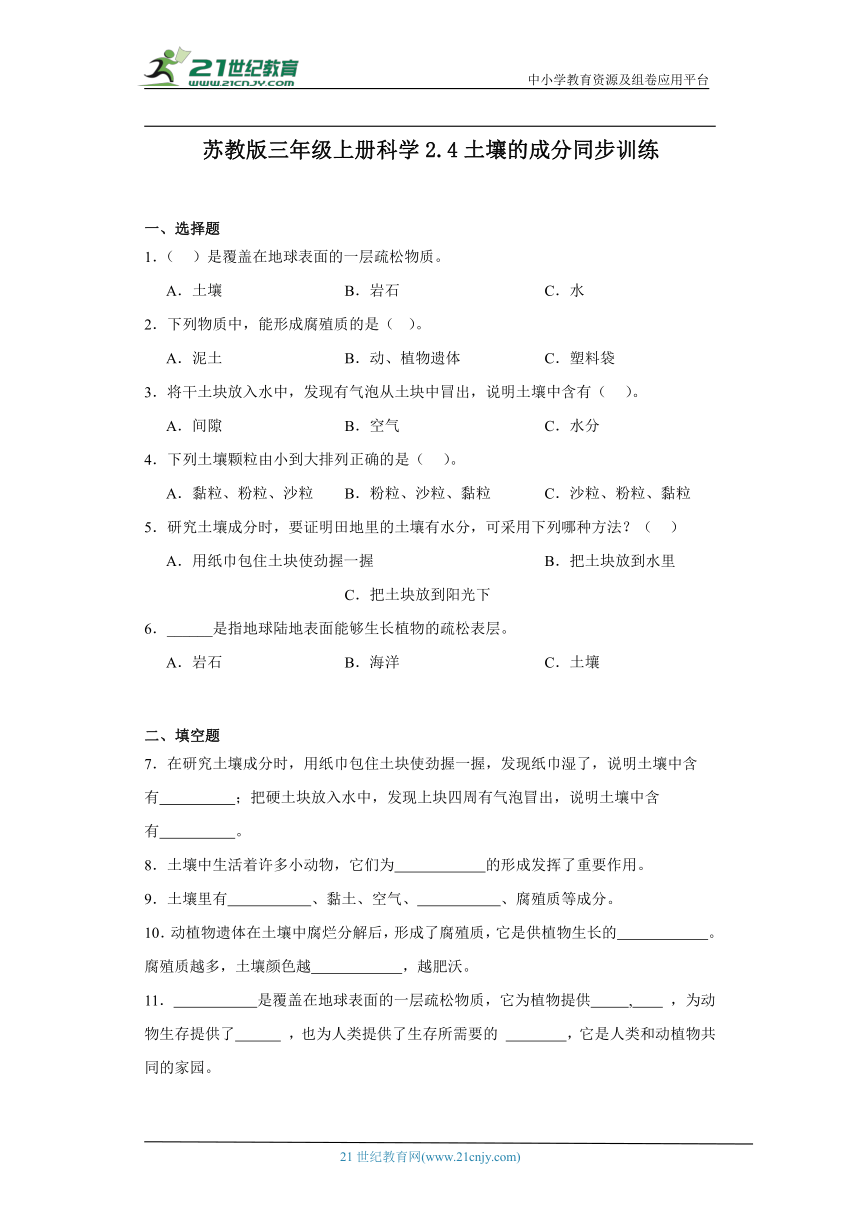 21世纪教育
WWW.21CNJY.COM
中小学教育资源及组卷应用平台
苏教版三年级上册科学2.4土壤的成分同步训练
一、选择题
1.( )是覆盖在地球表面的一层疏松物质。
A．土壤 B．岩石 C．水
2．下列物质中，能形成腐殖质的是( )。
A．泥土 B．动、植物遗体 C．塑料袋
3．将干土块放入水中，发现有气泡从土块中冒出，说明土壤中含有( )。
A．间隙 B．空气 C．水分
4．下列土壤颗粒由小到大排列正确的是( )。
A．黏粒、粉粒、沙粒 B．粉粒、沙粒、黏粒 C．沙粒、粉粒、黏粒
5．研究土壤成分时，要证明田地里的土壤有水分，可采用下列哪种方法？( )
A．用纸巾包住土块使劲握一握 B．把土块放到水里
C．把土块放到阳光下
6．______是指地球陆地表面能够生长植物的疏松表层。
A．岩石 B．海洋 C．土壤
二、填空题
7．在研究土壤成分时，用纸巾包住土块使劲握一握，发现纸巾湿了，说明土壤中含
有__________；把硬土块放入水中，发现上块四周有气泡冒出，说明土壤中含
有__________。
8．土壤中生活着许多小动物，它们为____________的形成发挥了重要作用。
9．土壤里有___________、黏土、空气、___________、腐殖质等成分。
10．动植物遗体在土壤中腐烂分解后，形成了腐殖质，它是供植物生长的____________。
腐殖质越多，土壤颜色越____________，越肥沃。
11．___________是覆盖在地球表面的一层疏松物质，它为植物提供_____,____，为动
物生存提供了______，也为人类提供了生存所需要的 ________，它是人类和动植物共
同的家园。
21世纪教育网(www.21cnjy.com)